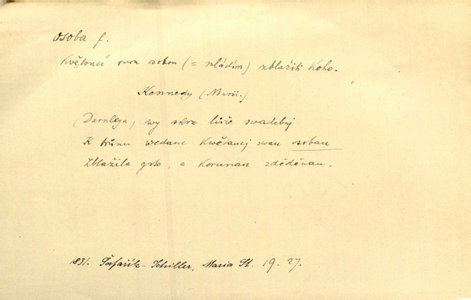 osoba f.
Květoucí svou sobou (= mládím) zblažiti koho.
Kennedy (Marii.)
(Darnleya), wy skrz lůže swadebnj
K trůnu wedane kwětaucj swau sobau
Zblažila gste, a korunau zděděnau.
1831. Šafařík-Schiller, Maria St. 19. 27.